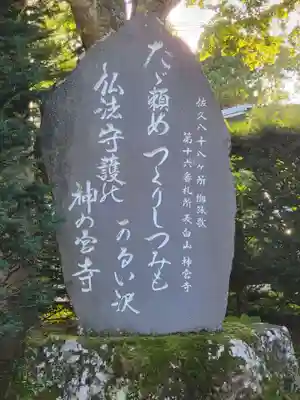 佐久八十八ヶ所御詠歌
第十六番札所 長白山 神宮寺
たゞ頼め つくりしつみも
かるい沢
仏法守護の
神の宮寺